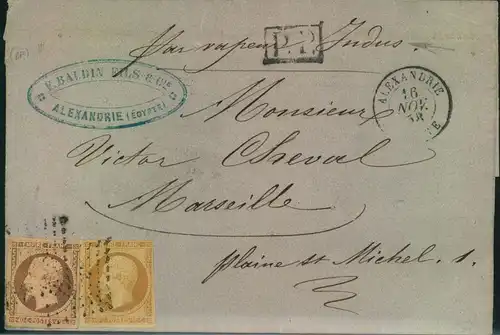 Par vapeur Indus
P.P.
F. BALDIN FILS & Cie
ALEXANDRIE (EGYPTE)
ALEXANDRIE
16
NOV.
58
Monsieur
Victor Cheval
Marseille
plaine St Michel. 1.
EMPIRE FRANC
EMPIRE FRANC